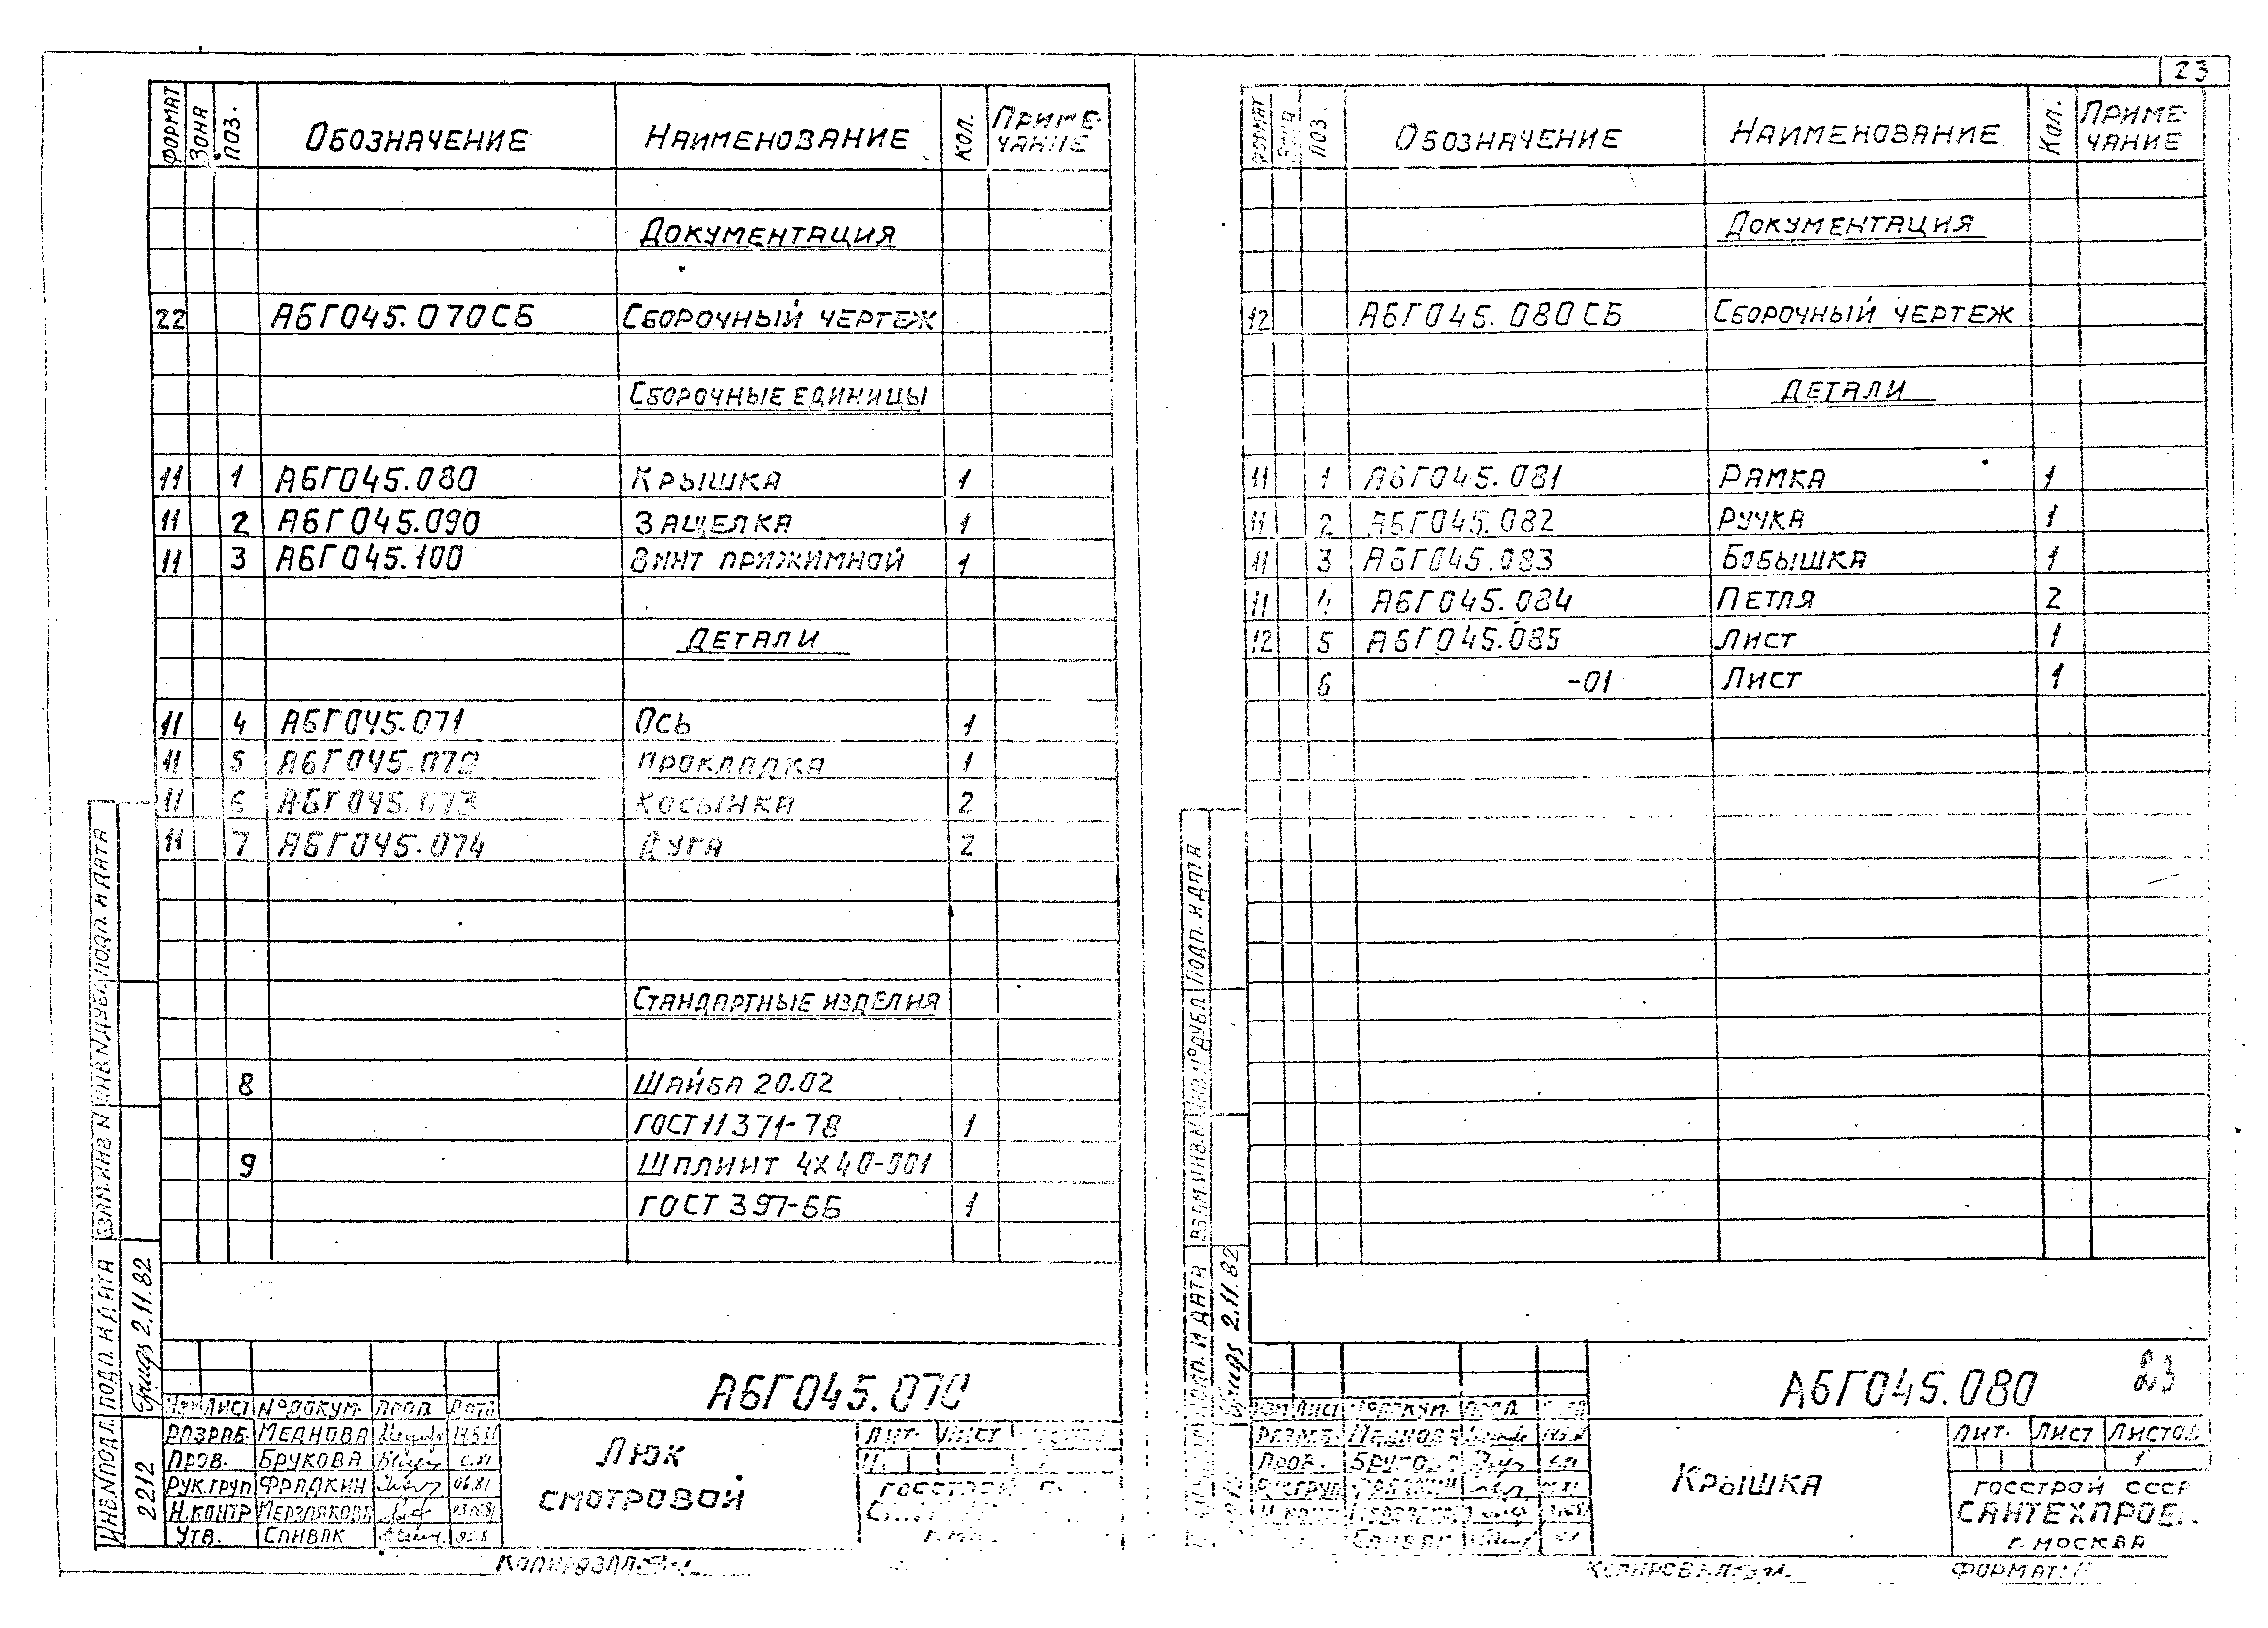 23
ФОРМАТ ЗОНА ПОЗ. ОБОЗНАЧЕНИЕ НАИМЕНОВАНИЕ КОЛ. ПРИМЕ-ЧАНИЕ
ДОКУМЕНТАЦИЯ
22 А6Г045.070СБ СБОРОЧНЫЙ ЧЕРТЕЖ
СБОРОЧНЫЕ ЕДИНИЦЫ
11 1 А6Г045.080 КРЫШКА 1
11 2 А6Г045.090 ЗАЩЕЛКА 1
11 3 А6Г045.100 ВИНТ ПРИЖИМНОЙ 1
ДЕТАЛИ
11 4 А6Г045.071 ОСЬ 1
11 5 А6Г045.072 ПРОКЛАДКА 1
11 6 А6Г045.073 КОСЫНКА 2
11 7 А6Г045.074 ДУГА 2
СТАНДАРТНЫЕ ИЗДЕЛИЯ
8 ШАЙБА 20.02
ГОСТ 11371-78 1
9 ШПЛИНТ 4Х40-001
ГОСТ 397-66 1
ИНВ.№ПОДЛ. ПОДП. И ДАТА ВЗАМ.ИНВ.№ ИНВ.№ДУБЛ. ПОДП. И ДАТА
2212 2.11.82
А6Г045.070
ИЗМ ЛИСТ №ДОКУМ. ПОДП. ДАТА
РАЗРАБ. МЕДНОВА
ПРОВ. БРУКОВА
РУК.ГРУП ФРАДКИН 06.81
Н.КОНТР МЕРЗЛЯКОВА
УТВ. СПИВАК
ЛЮК
СМОТРОВОЙ
ЛИТ. ЛИСТ
ГОССТРОЙ
КОПИРОВАЛ:
ФОРМАТ ПОЗ. ОБОЗНАЧЕНИЕ НАИМЕНОВАНИЕ КОЛ. ПРИМЕ-ЧАНИЕ
ДОКУМЕНТАЦИЯ
12 А6Г045.080СБ СБОРОЧНЫЙ ЧЕРТЕЖ
ДЕТАЛИ
11 1 А6Г045.081 РАМКА 1
11 2 А6Г045.082 РУЧКА 1
11 3 А6Г045.083 БОБЫШКА 1
11 4 А6Г045.084 ПЕТЛЯ 2
12 5 А6Г045.085 ЛИСТ 1
6 -01 ЛИСТ 1
ПОДП. И ДАТА ВЗАМ.ИНВ.№ ИНВ.№ДУБЛ ПОДП. И ДАТА
2.11.82
А6Г045.080 23
ИЗМ ЛИСТ №ДОКУМ. ПОДП.
РАЗРАБ. МЕДНОВА
ПРОВ. БРУКОВА
РУК.ГРУП ФРАДКИН
Н.КОНТР
СПИВАК
КРЫШКА
ЛИТ. ЛИСТ ЛИСТОВ
1
ГОССТРОЙ СССР
САНТЕХПРОЕК
Г. МОСКВА
КОПИРОВАЛ: ФОРМАТ: